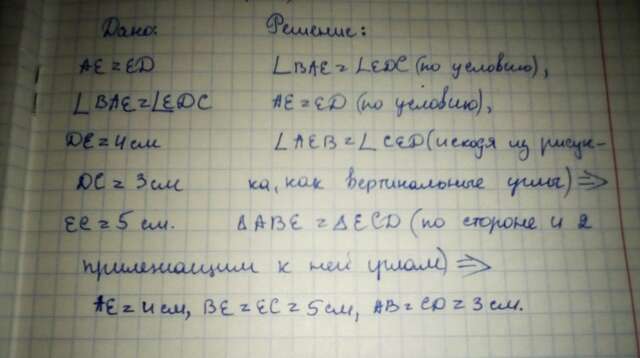 Дано: Решение:
AE = ED ∠BAE = ∠EDC (по условию),
∠BAE = ∠EDC AE = ED (по условию),
DE = 4 см ∠AEB = ∠CED (исходя из рисун-
DC = 3 см ка, как вертикальные углы) ⇒
EC = 5 см. ΔABE = ΔECD (по стороне и 2
прилежащим к ней углам) ⇒
AE = 4 см, BE = EC = 5 см, AB = CD = 3 см.